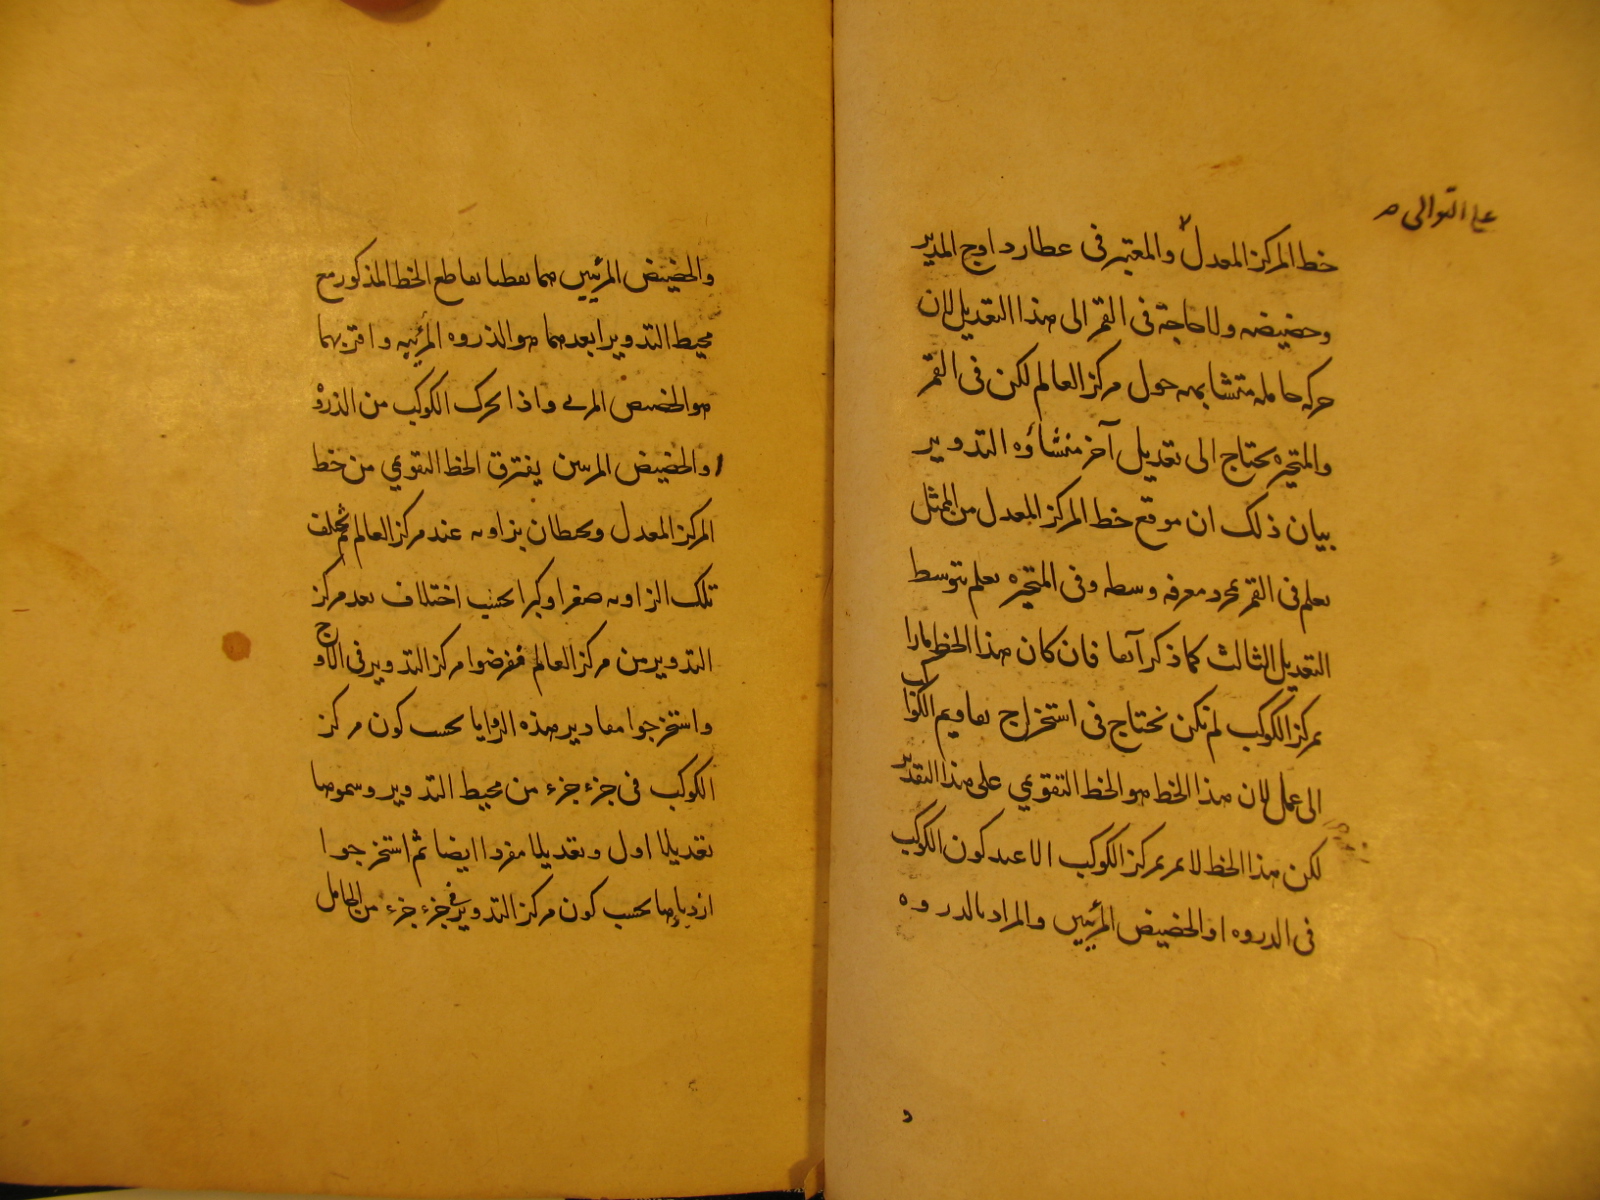 على التوالى صح
خط المركز المعدل والمعتبر فى عطارد اوج المدير
وحضيضه ولا حاجة فى القمر الى هذا التعديل لان
حركه حامله متشابهه حول مركز العالم لكن فى القمر
والمتحيره يحتاج الى تعديل آخر منشاؤه التدوير
بيان ذلك ان موقع خط المركز المعدل من الممثل
يعلم فى القمر بمجرد معرفه وسطه وفى المتحيره يعلم بتوسط
التعديل الثالث كما ذكر آنفا فان كان هذا الخط مارا
بمركز الكوكب لم نكن نحتاج فى استخراج تقاويم الكواكب
الى عمل لان هذا الخط هو الخط التقويمي على هذا التقدير
لكن هذا الخط لا يمر بمركز الكوكب الا عند كون الكوكب
فى الذروه او الحضيض المرئيين والمراد بالذروه
والحضيض المرئيين هما نقطتا تقاطع الخط المذكور مع
محيط التدوير ابعدهما هو الذروه المرئيه واقربهما
هو الحضيض المرئى واذا تحرك الكوكب من الذروة
او الحضيض المرئيين يفترق الخط التقويمي من خط
المركز المعدل ويحيطان بزاويه عند مركز العالم ثم يختلف
تلك الزاويه صغرا وكبرا بحسب اختلاف بعد مركز
التدوير من مركز العالم ففرضوا مركز التدوير فى الاوج
واستخرجوا مقادير هذه الزوايا بحسب كون مركز
الكوكب فى جزء جزء من محيط التدوير وسموها
تعديلا اول وتعديلا مفردا ايضا ثم استخرجوا
ازديادها بحسب كون مركز التدوير فى جزء جزء من الحامل